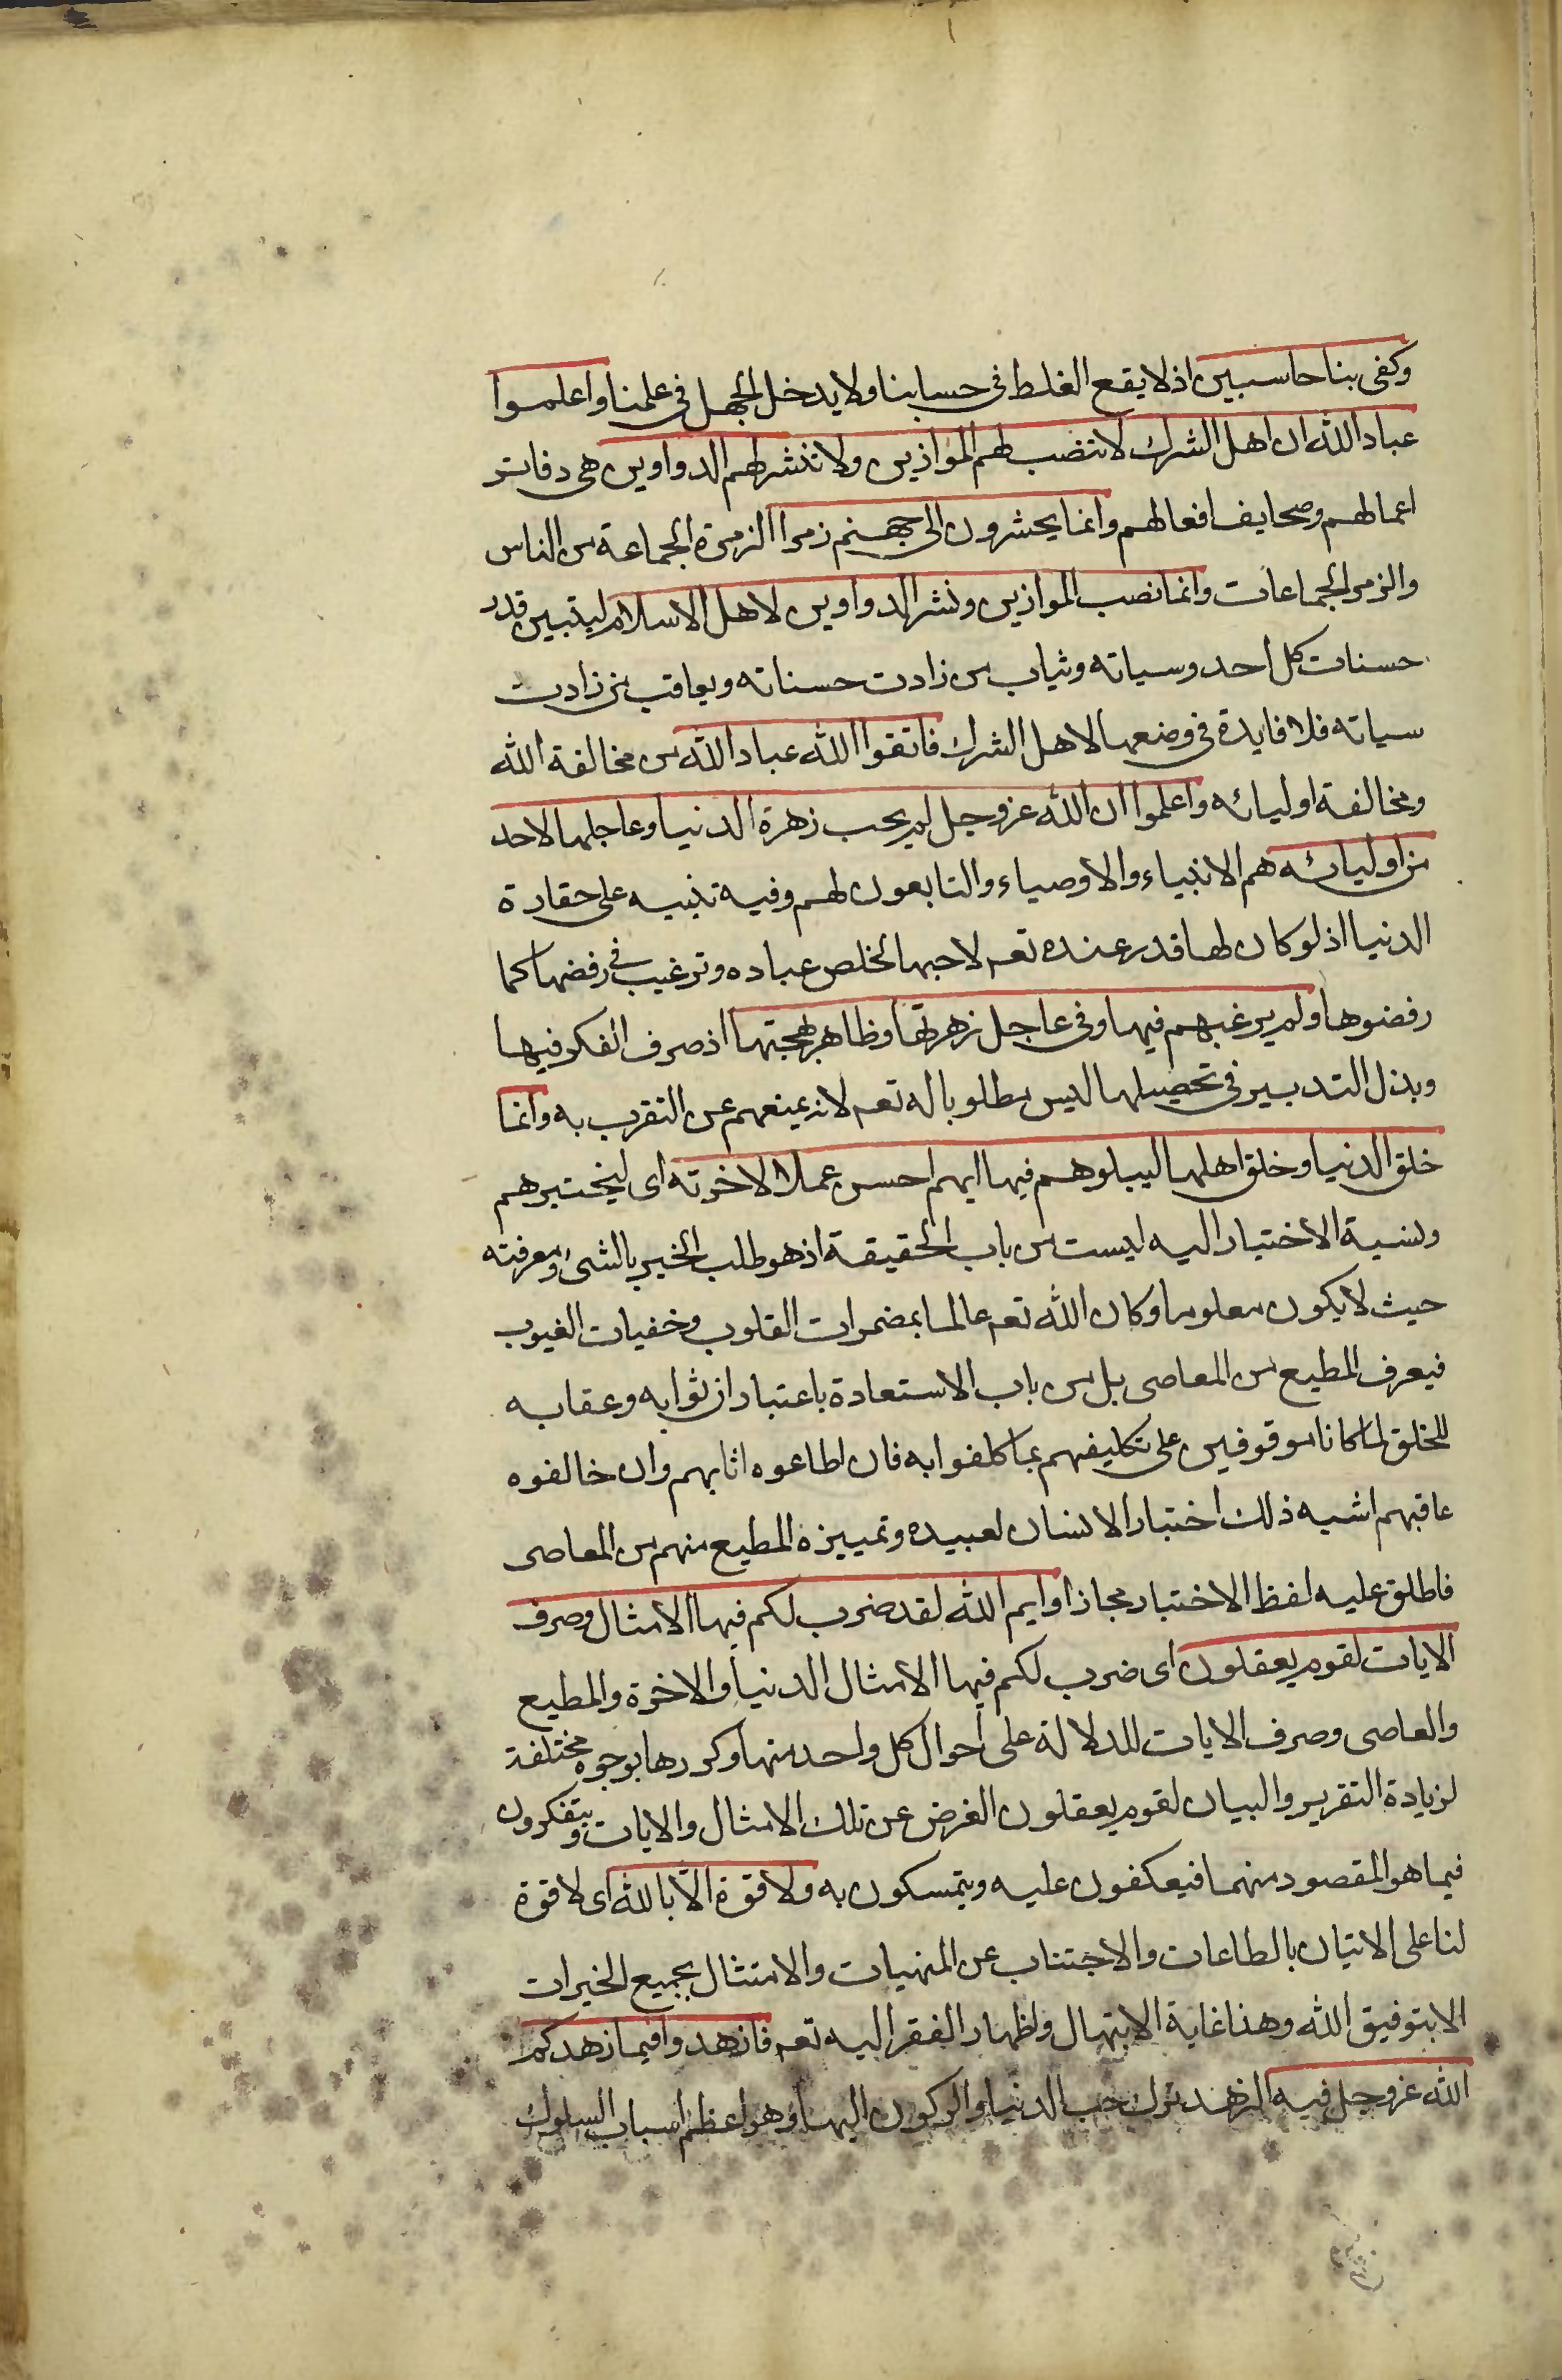 وكفى بنا حاسبين اذ لا يقع الغلط فى حسابنا ولا يدخل الجهل فى علمنا واعلموا
عباد الله ان اهل الشرك لا تنصب لهم الموازين ولا تنشر لهم الدواوين هى دفاتر
اعمالهم وصحايف افعالهم وانما يحشرون الى جهنم زمرا الزمرة الجماعة من الناس
والزمر الجماعات وانما نصب الموازين ونشر الدواوين لاهل الاسلام ليتبين قدر
حسنات كل احد وسياته ويثاب من زادت حسناته ويعاقب من زادت
سياته فلا فايدة فى وضعها لاهل الشرك فاتقوا الله عباد الله من مخالفة الله
ومخالفة اوليائه واعلموا ان الله عز وجل لم يحب زهرة الدنيا وعاجلها لاحد
من اوليائه هم الانبياء والاوصياء والتابعون لهم وفيه تنبيه على حقارة
الدنيا اذ لو كان لها قدر عنده تعم لاحبها لخلص عباده وترغيب فى رفضها كما
رفضوها ولم يرغبهم فيها وفى عاجل زهرتها وظاهر بهجتها اذ صرف الفكر فيها
وبذل التدبير فى تحصيلها ليس مطلوبا له تعم لانه يمنعهم عن التقرب به وانما
خلق الدنيا وخلق اهلها ليبلوهم فيها ايهم احسن عملا لاخرته اى ليختبرهم
ونسبة الاختيار اليه ليست من باب الحقيقة اذ هو طلب الخبر بالشى ومعرفته
حيث لا يكون معلوما وكان الله تعم عالما بمضمرات القلوب وخفيات الغيوب
فيعرف المطيع من المعاصى بل من باب الاستعادة باعتبار ان ثوابه وعقابه
للخلق لما كانا موقوفين على تكليفهم بما كلفوا به فان اطاعوه اثابهم وان خالفوه
عاقبهم اشبه ذلك اختبار الانسان لعبيده وتمييزه المطيع منهم من المعاصى
فاطلق عليه لفظ الاختبار مجازا وايم الله لقد ضرب لكم فيها الامثال وصرف
الايات لقوم يعقلون اى ضرب لكم فيها الامثال الدنيا والاخرة والمطيع
والعاصى وصرف الايات للدلالة على احوال كل واحد منها وكررها بوجوه مختلفة
لزيادة التقرير والبيان لقوم يعقلون الغرض عن تلك الامثال والايات ويتفكرون
فيما هو المقصود منهما فيعكفون عليه ويتمسكون به ولا قوة الا بالله اى لا قوة
لنا على الاتيان بالطاعات والاجتناب عن المنهيات والامتثال بجميع الخيرات
الا بتوفيق الله وهذا غاية الابتهال واظهار الفقر اليه تعم فازهدوا فيما زهدكم
الله عز وجل فيه الزهد ترك حب الدنيا والركون اليها وهو اعظم اسباب السلوك